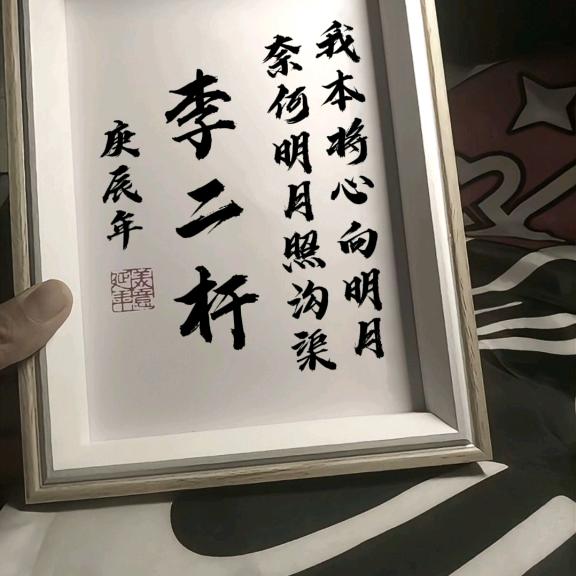 我本将心向明月
奈何明月照沟渠
李二杆
庚辰年
美意延年